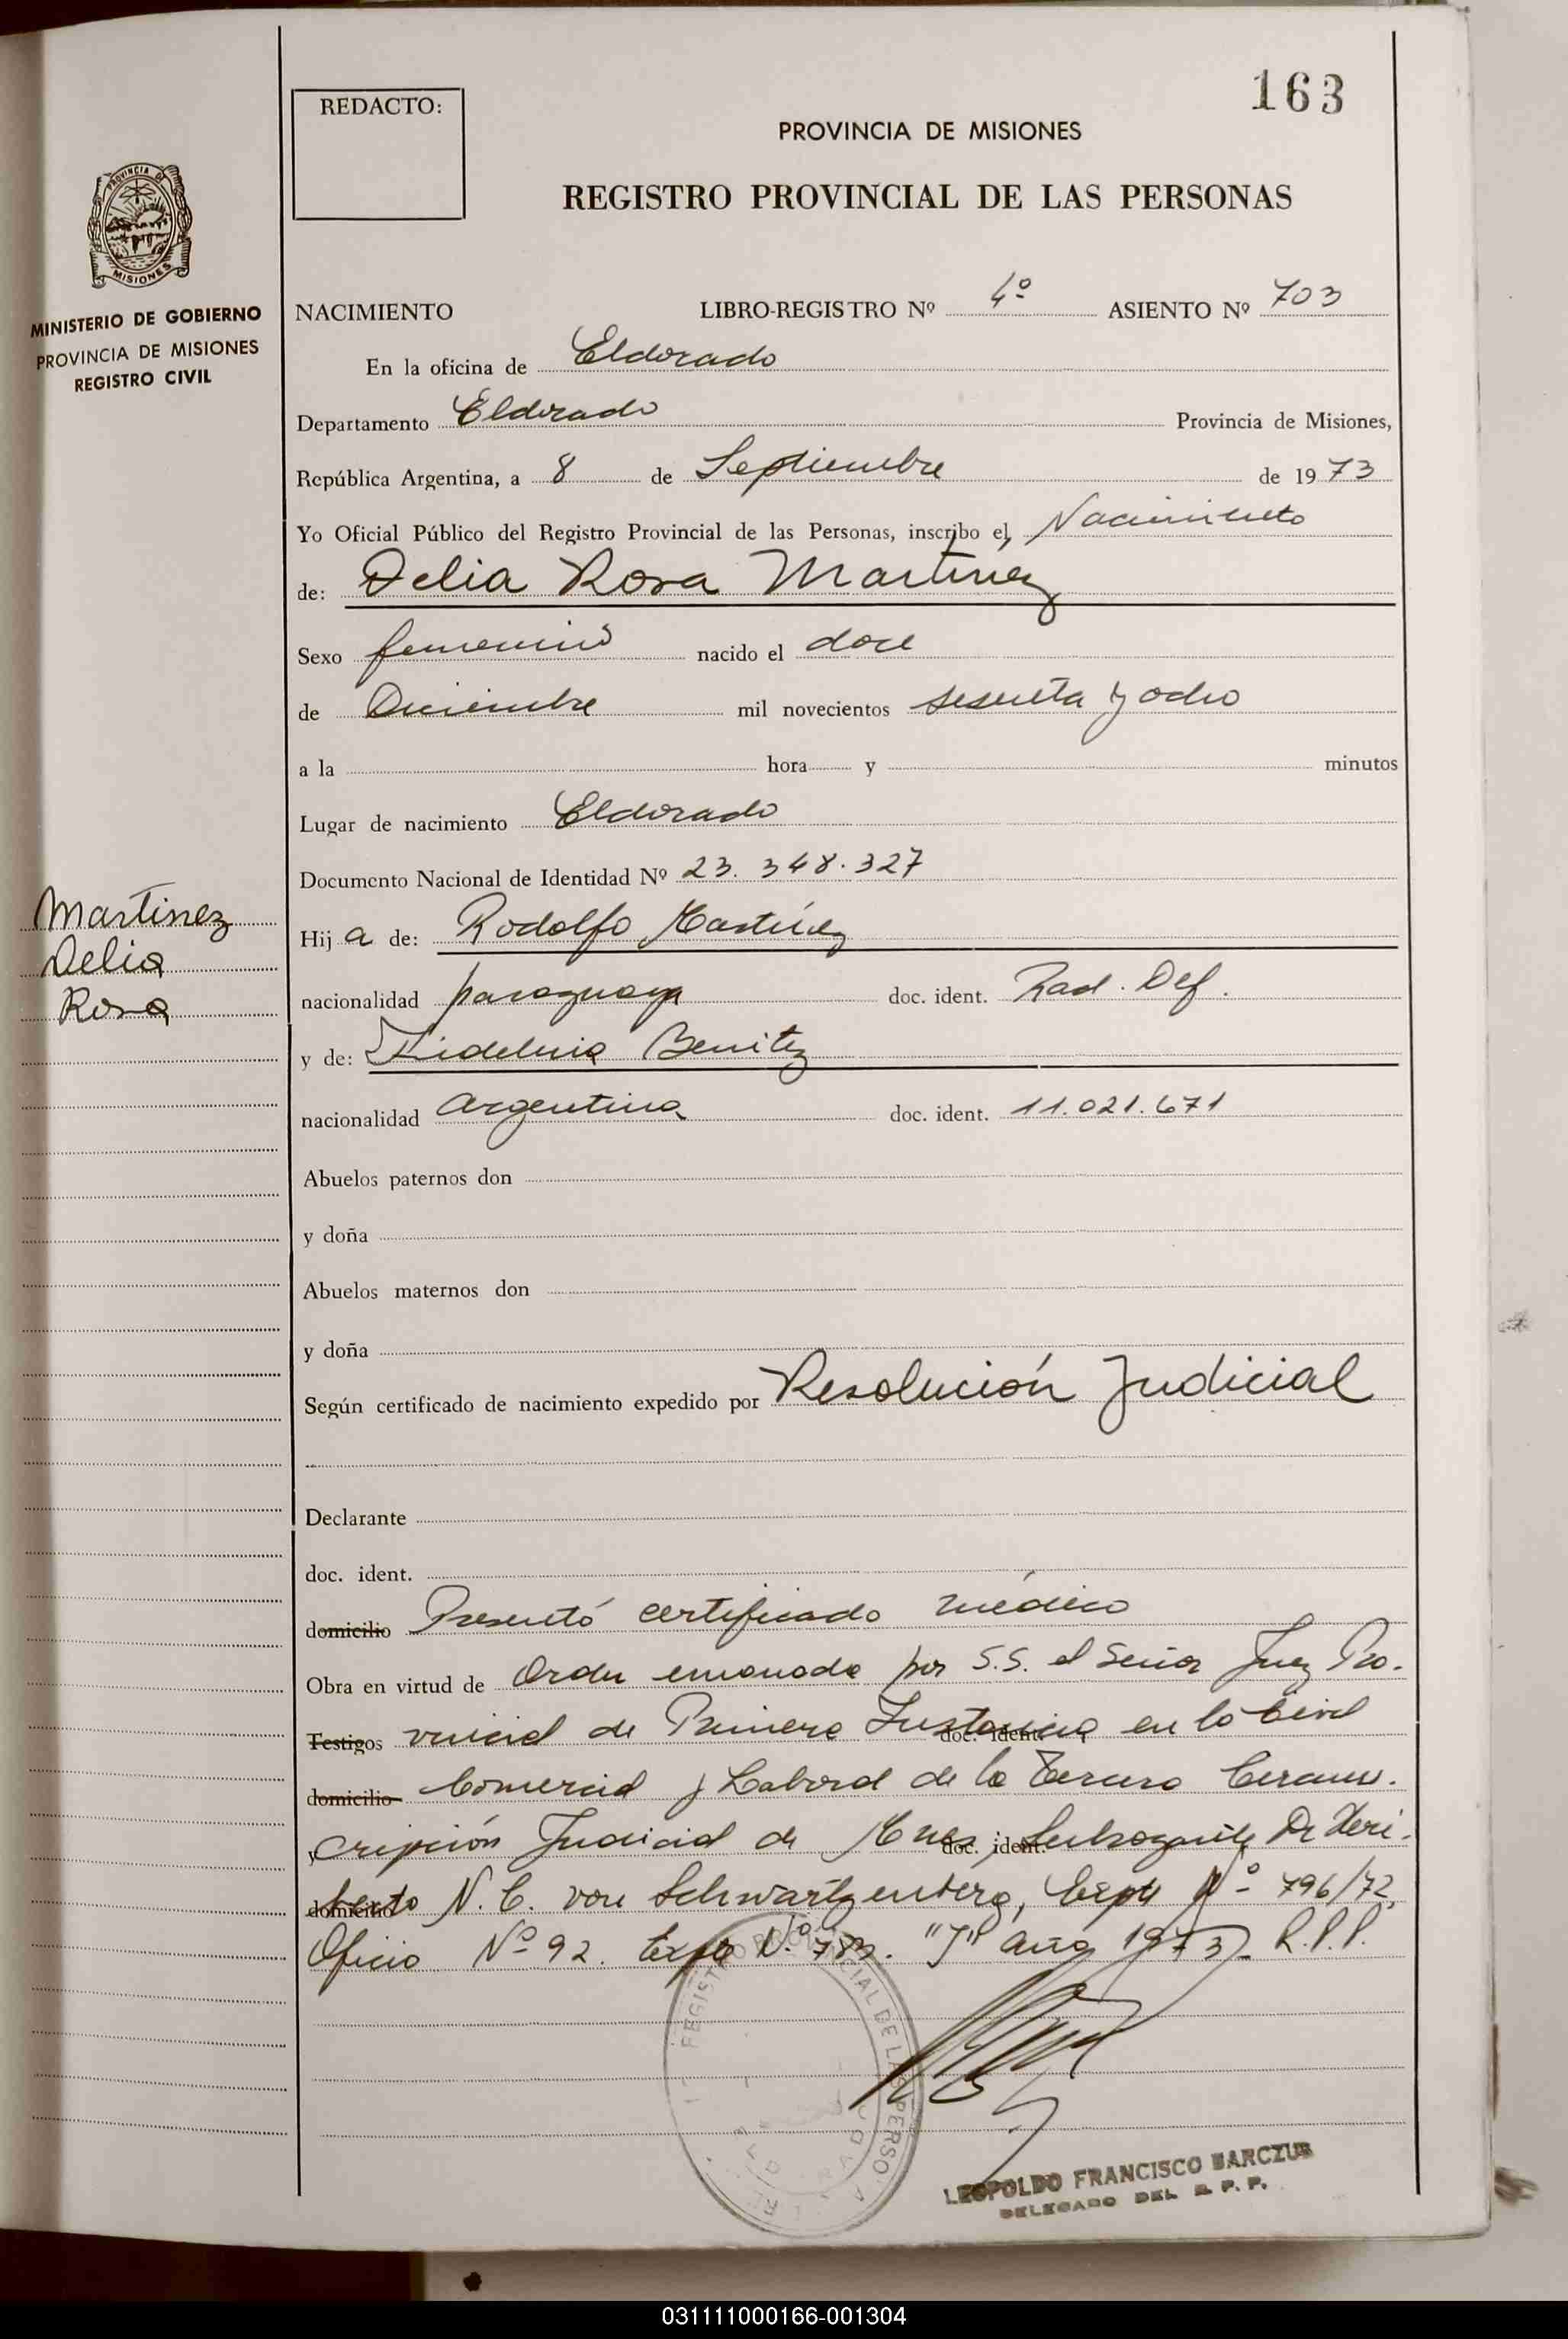 163
REDACTO:
PROVINCIA DE MISIONES
REGISTRO PROVINCIAL DE LAS PERSONAS
PROVINCIA DE
MISIONES
MINISTERIO DE GOBIERNO
PROVINCIA DE MISIONES
REGISTRO CIVIL
NACIMIENTO LIBRO-REGISTRO Nº 4º ASIENTO Nº 703
En la oficina de Eldorado
Departamento Eldorado Provincia de Misiones,
República Argentina, a 8 de Septiembre de 1973
Yo Oficial Público del Registro Provincial de las Personas, inscribo el, Nacimiento
de: Delia Rosa Martinez
Sexo femenino nacido el doce
de Diciembre mil novecientos sesenta y ocho
a la hora y minutos
Lugar de nacimiento Eldorado
Documento Nacional de Identidad Nº 23.348.327
Martinez
Delia
Rosa
Hija de: Rodolfo Martínez
nacionalidad paraguaya doc. ident. Rad. Def.
y de: Benitez
nacionalidad argentina doc. ident. 11.021.671
Abuelos paternos don
y doña
Abuelos maternos don
y doña
Según certificado de nacimiento expedido por Resolución Judicial
Declarante
doc. ident.
domicilio Presentó certificado médico
Obra en virtud de Orden emanada por S.S. el Señor Juez Pro-
Testigos vincial de Primera Instancia doc. ident. en lo Civil
domicilio Comercial y Laboral de la Tercera Circuns-
y cripción Judicial de Mnes, doc. ident. Subrogante Dr Heri-
domicilio berto N. C. von Schwartzenberg, Expte Nº 796/72,
Oficio Nº 92. Expte Nº 783. "J" año 1973 R.P.P.
REGISTRO PROVINCIAL DE LAS PERSONAS
LEOPOLDO FRANCISCO BARCZUK
DELEGADO DEL R. P. P.
031111000166-001304